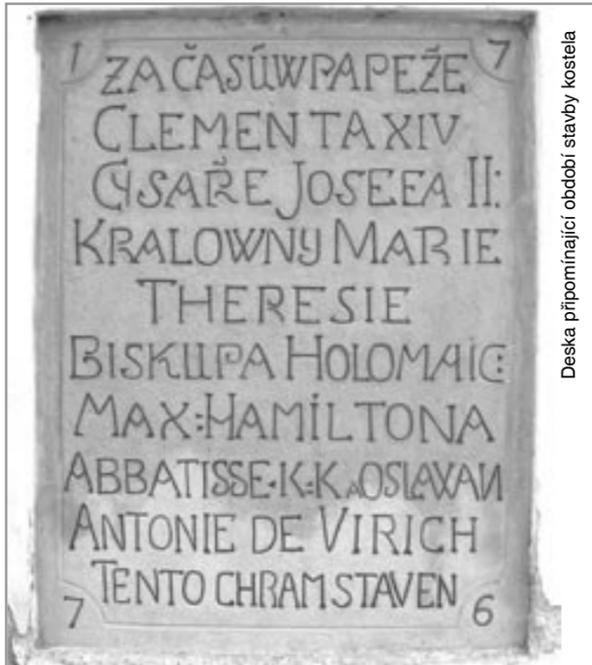 1 7
ZA ČASÚW PAPEŽE
CLEMENTA XIV
CYSAŘE JOSEEA II:
KRALOWNY MARIE
THERESIE
BISKUPA HOLOMAIC:
MAX:HAMILTONA
ABBATISSE·K:K A OSLAVAN
ANTONIE DE VIRICH
TENTO CHRAM STAVEN
7 6
Deska připomínající období stavby kostela